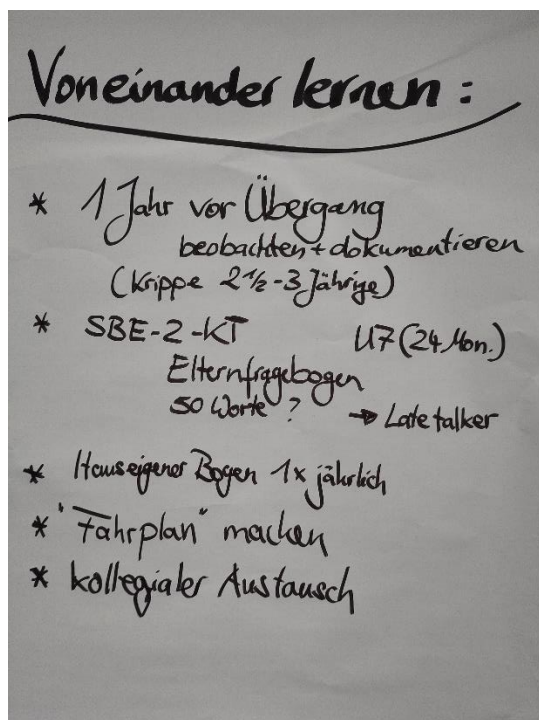 Voneinander lernen :
* 1 Jahr vor Übergang
beobachten + dokumentieren
(Krippe 2 1/2 - 3 Jährige)
* SBE-2-KT U7 (24 Mon.)
Elternfragebogen
50 Worte ? → Late talker
* Hauseigener Bogen 1x jährlich
* "Fahrplan" machen
* kollegialer Austausch